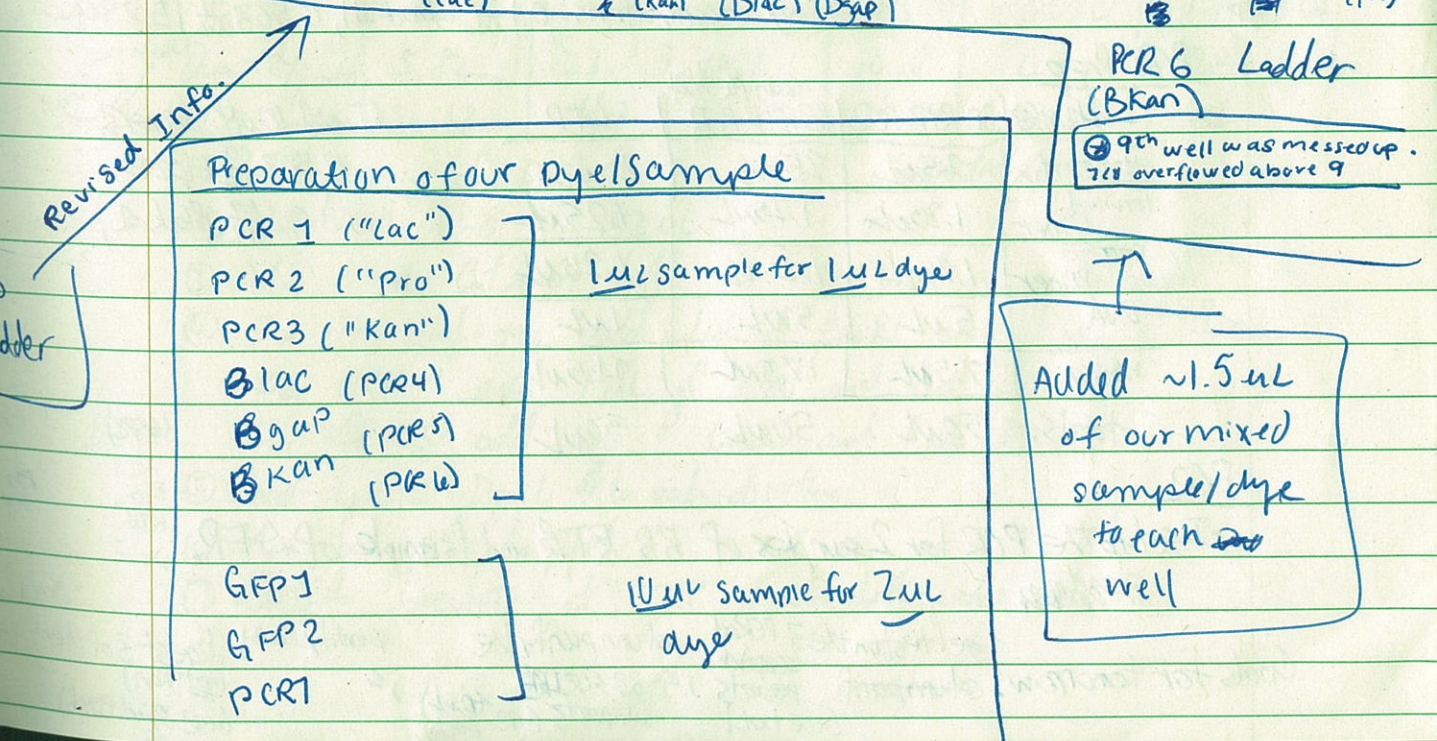 (Kan) (Blac) (Bgap)
Revised Info.
PCR 6 Ladder
(BKan)
9th well was messed up.
7&8 overflowed above 9
Preparation of our Dye/Sample
PCR 1 ("Lac")
PCR 2 ("Pro")
PCR3 ("Kan")
Blac (PCR4)
Bgap (PCR5)
BKan (PCR6)
1uL sample for 1uL dye
GFP1
GFP2
PCR1
10uL sample for 2uL
dye
Added ~1.5uL
of our mixed
sample/dye
to each
well